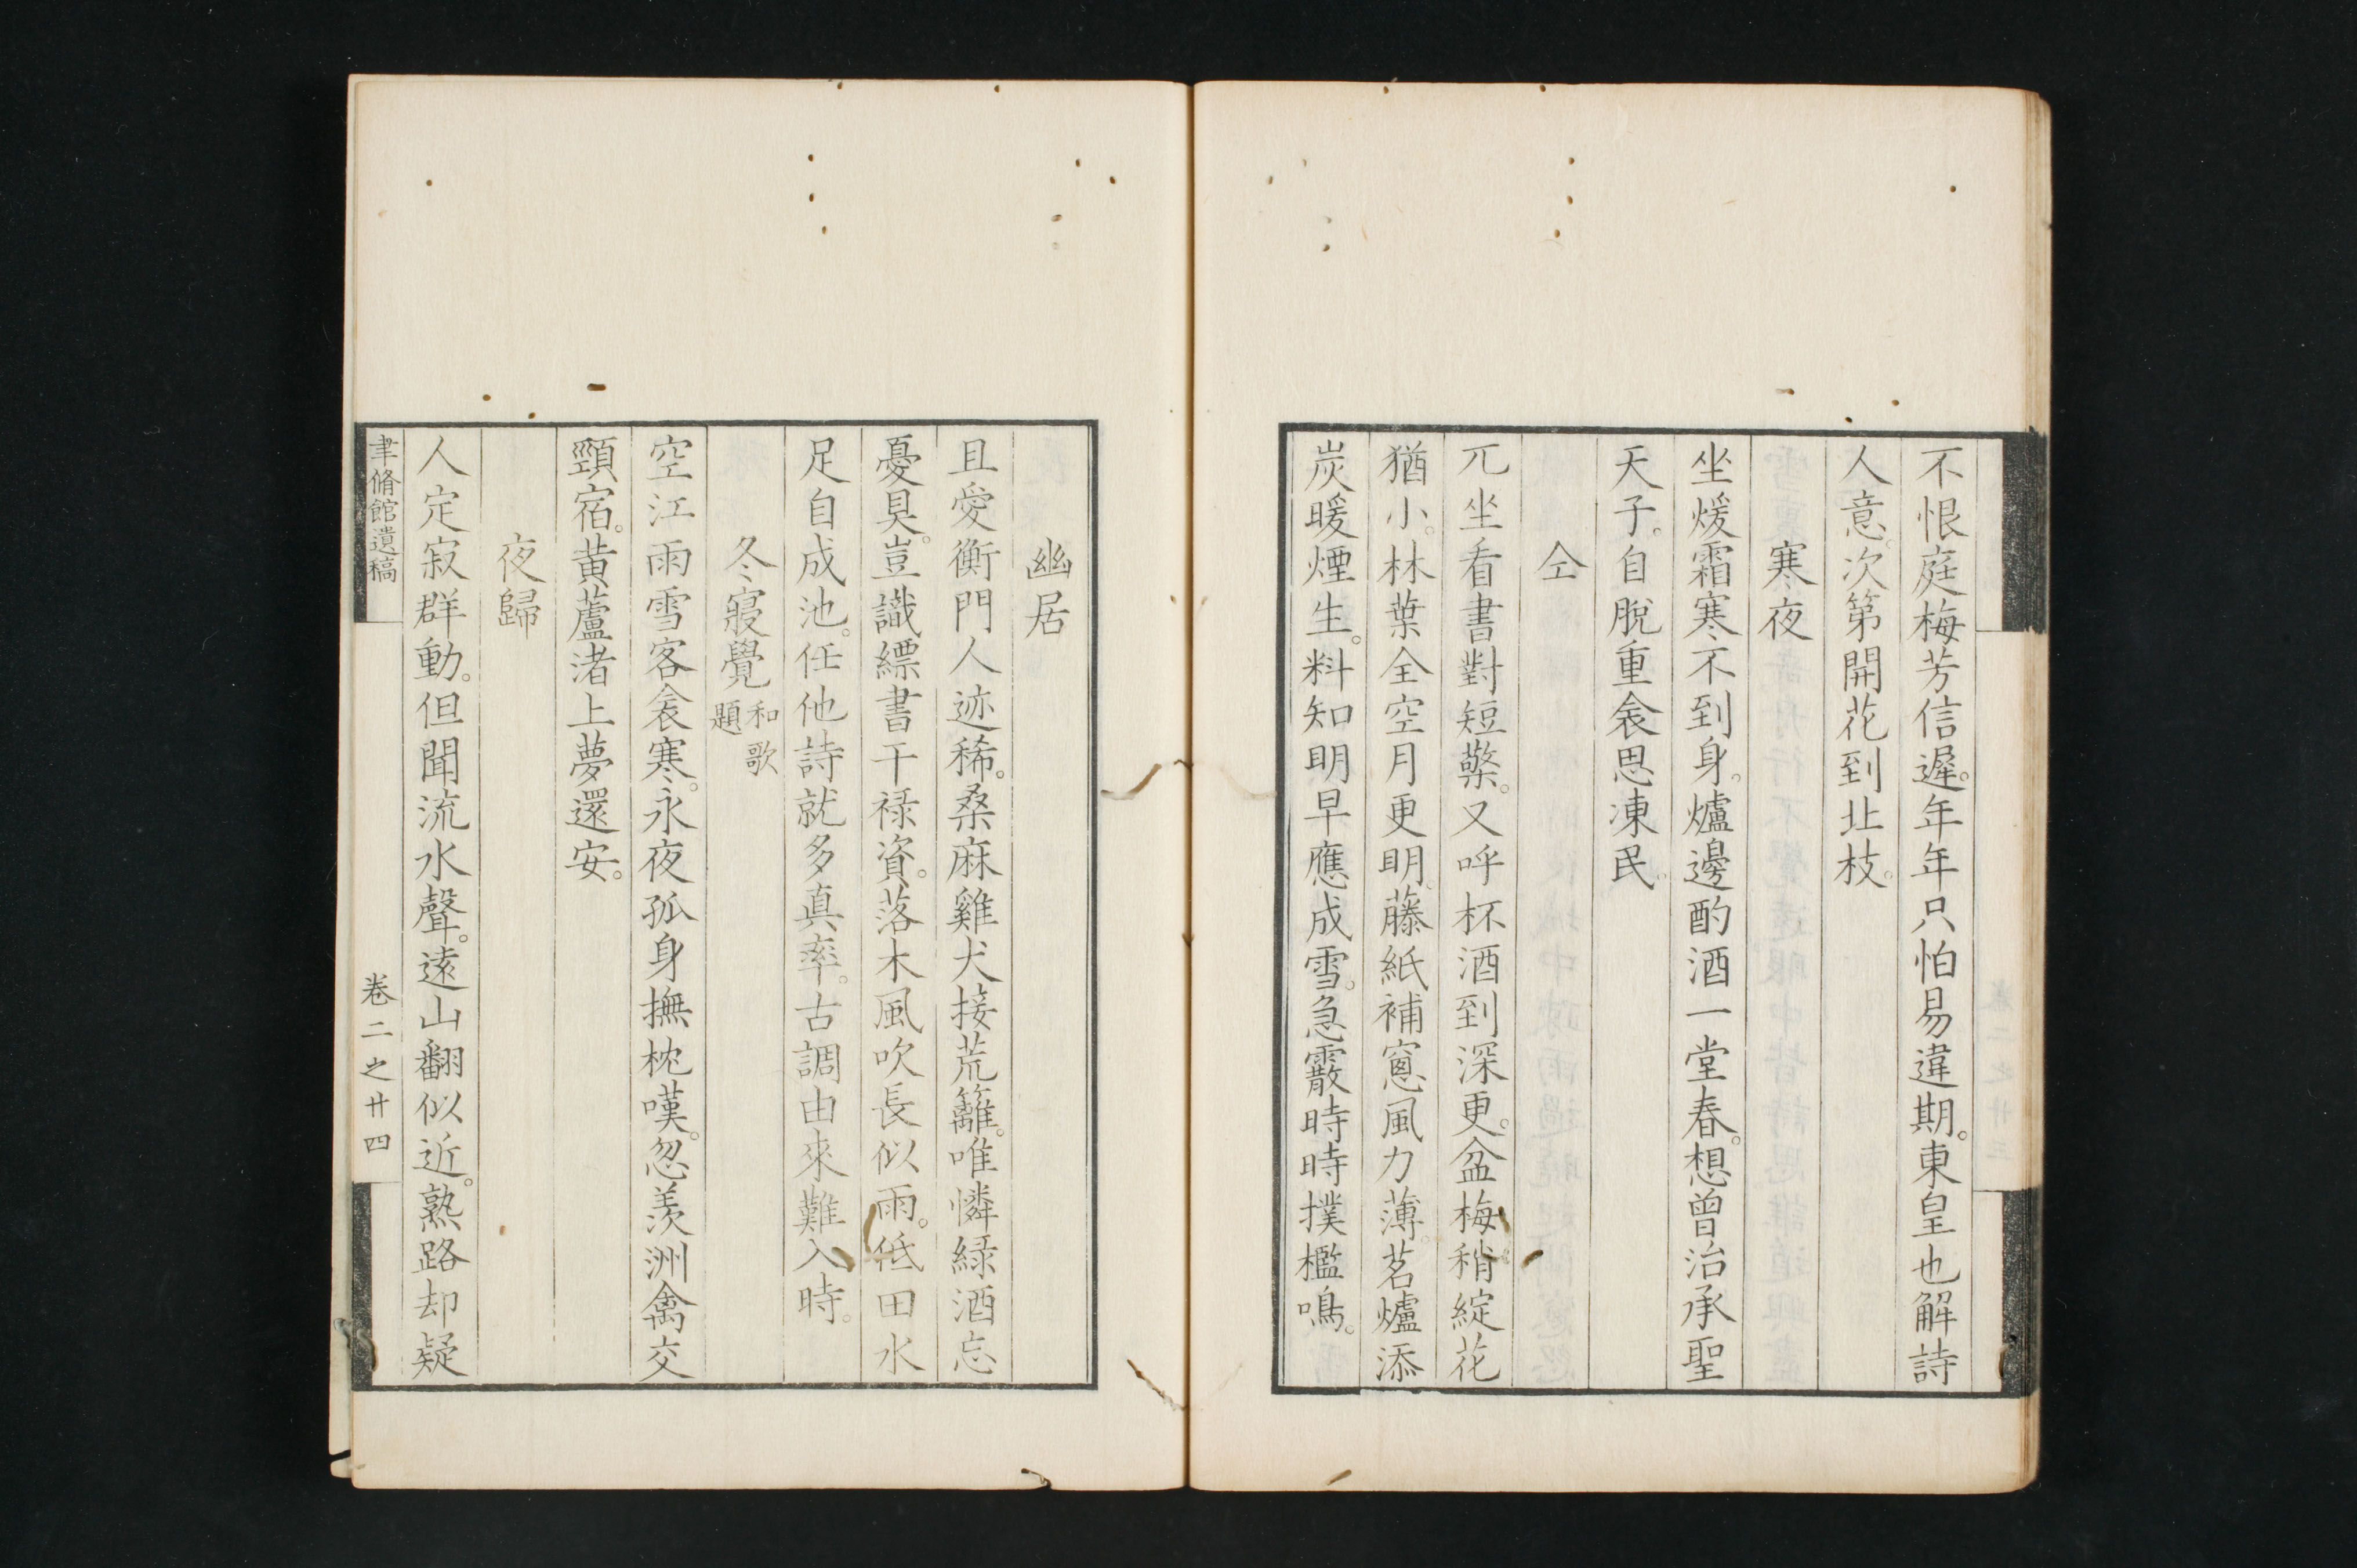 不恨庭梅芳信遲。年年只怕易違期。東皇也解詩
人意。次第開花到北枝。
寒夜
坐煖霜寒不到身。爐邊酌酒一堂春。想曾治承聖
天子。自脫重衾思凍民。
仝
兀坐看書對短檠。又呼杯酒到深更。盆梅稍綻花
猶小。林葉全空月更明。藤紙補窻風力薄。茗爐添
炭暖煙生。料知明早應成雪。急霰時時撲檻鳴。
幽居
且愛衡門人迹稀。桑麻雞犬接荒籬。唯憐綠酒忘
憂具。豈識縹書干祿資。落木風吹長似雨。低田水
足自成池。任他詩就多真率。古調由來難入時。
冬寢覺 和歌題
空江雨雪客衾寒。永夜孤身撫枕嘆。忽羨洲禽交
頸宿。黃蘆渚上夢還安。
夜歸
人定寂群動。但聞流水聲。遠山翻似近。熟路却疑
聿脩館遺稿
卷二之廿四